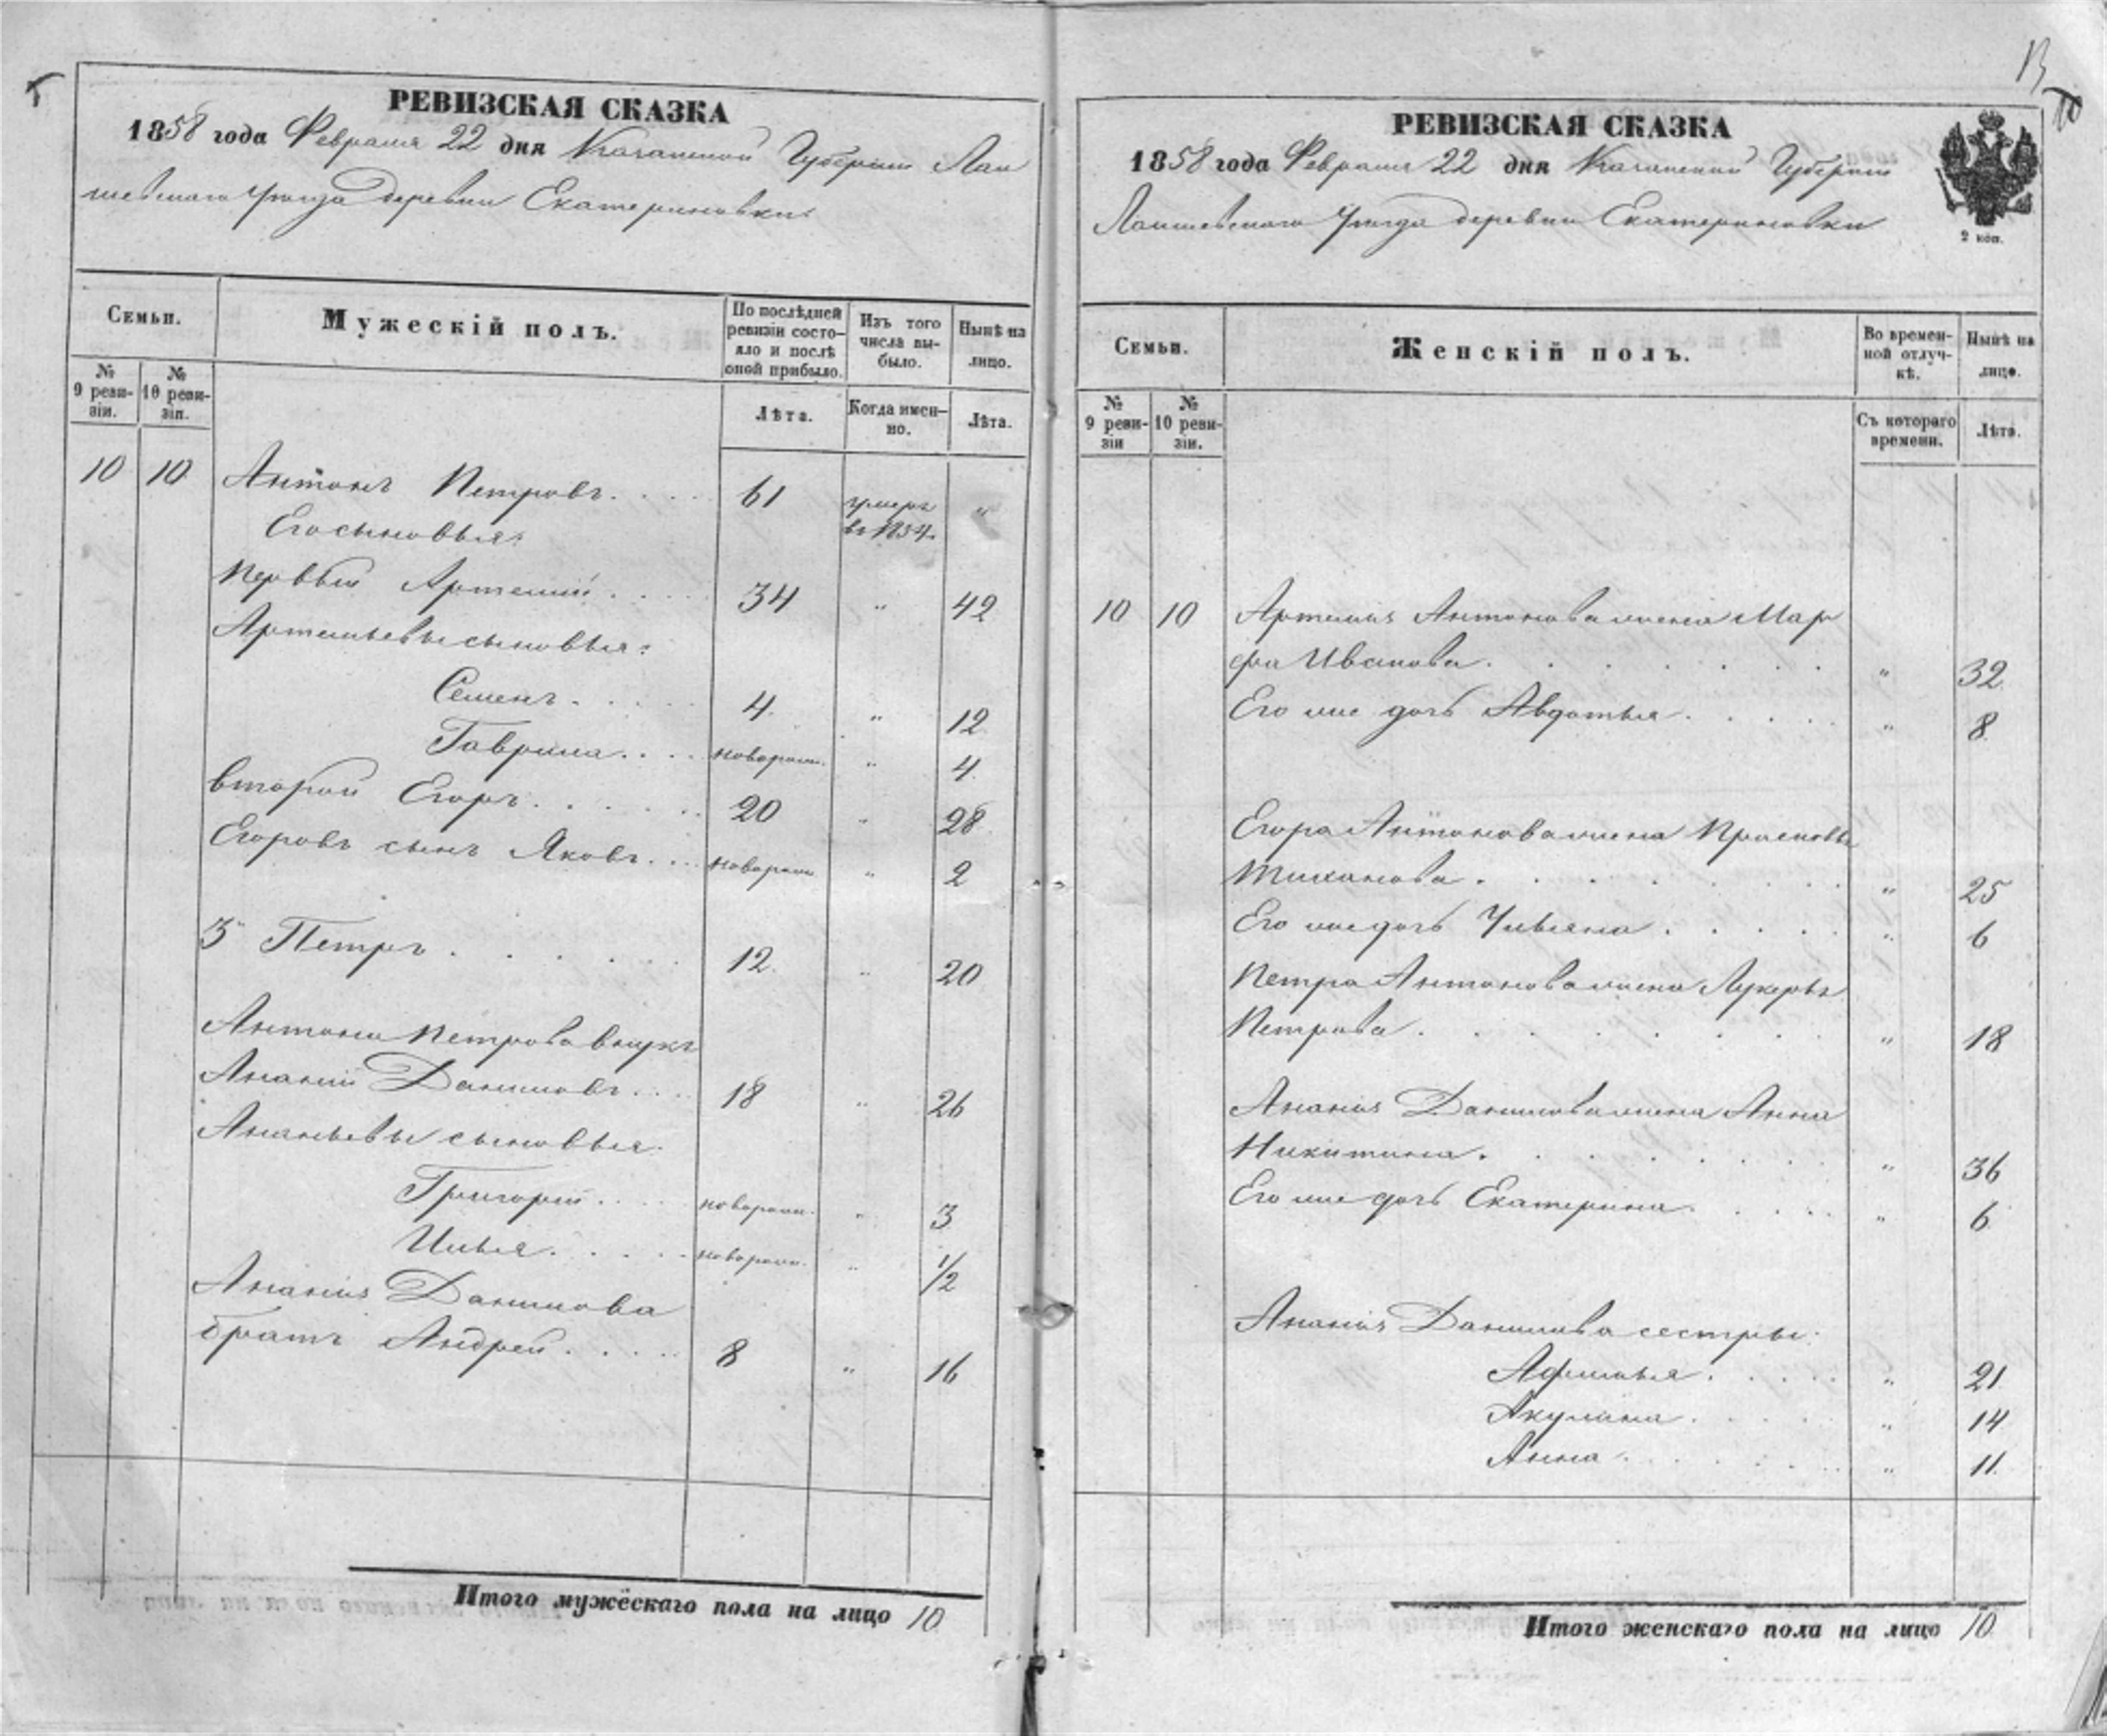 РЕВИЗСКАЯ СКАЗКА
1858 года Февраля 22 дня Казанской Губернiи Лаи
шевскаго Уѣзда деревни Екатериновки
Семьи.
Мужескiй полъ.
По послѣдней ревизiи состо-
яло и послѣ
оной прибыло.
Изъ того
числа вы-
было.
Нынѣ на
лицо.
№
9 реви-
зiи.
№
10 реви-
зiи.
Лѣта.
Когда имен-
но.
Лѣта.
10 10 Антонъ Петровъ . . . . 61 умеръ "
Его сыновья: въ 1854.
Первый Артемiй . . . . 34 " 42
Артемьевы сыновья:
Семенъ . . . . . 4. " 12
Гаврила . . . . новорожд. " 4
второй Егоръ . . . . . 20 " 28
Егоровъ сынъ Яковъ . . . новорожд " 2
3й Петръ . . . . . . 12 " 20
Антона Петрова внукъ
Ананiй Даниловъ . . . . 18 " 26
Ананьевы сыновья.
Григорiй . . . . новорожд. " 3
Илья . . . . . новорожд. " 1/2
Ананiя Данилова
братъ Андрей . . . . . 8 " 16
Итого мужескаго пола на лицо 10
13
РЕВИЗСКАЯ СКАЗКА
1858 года Февраля 22 дня Казанской Губернiи
Лаишевскаго Уѣзда деревни Екатериновки
2 коп.
Семьи.
Женскiй полъ.
Во времен-
ной отлуч-
кѣ.
Нынѣ на
лицо.
№
9 реви-
зiи
№
10 реви-
зiи.
Съ котораго
времени.
Лѣта.
10 10 Артемiя Антонова жена Мар
фа Иванова . . . . . . . " 32
Его же дочь Авдотья . . . . . " 8
Егора Антонова жена Прасковья
Тиханова . . . . . . . " 25
Его же дочь Ульяна . . . . . " 6
Петра Антонова жена Лукерья
Петрова . . . . . . . " 18
Ананiя Данилова жена Анна
Никитина . . . . . . . " 36
Его же дочь Екатерина . . . . . " 6
Ананiя Данилова сестры:
Афимья . . . . . " 21
Акулина . . . . . " 14
Анна . . . . . . " 11
Итого женскаго пола на лицо 10